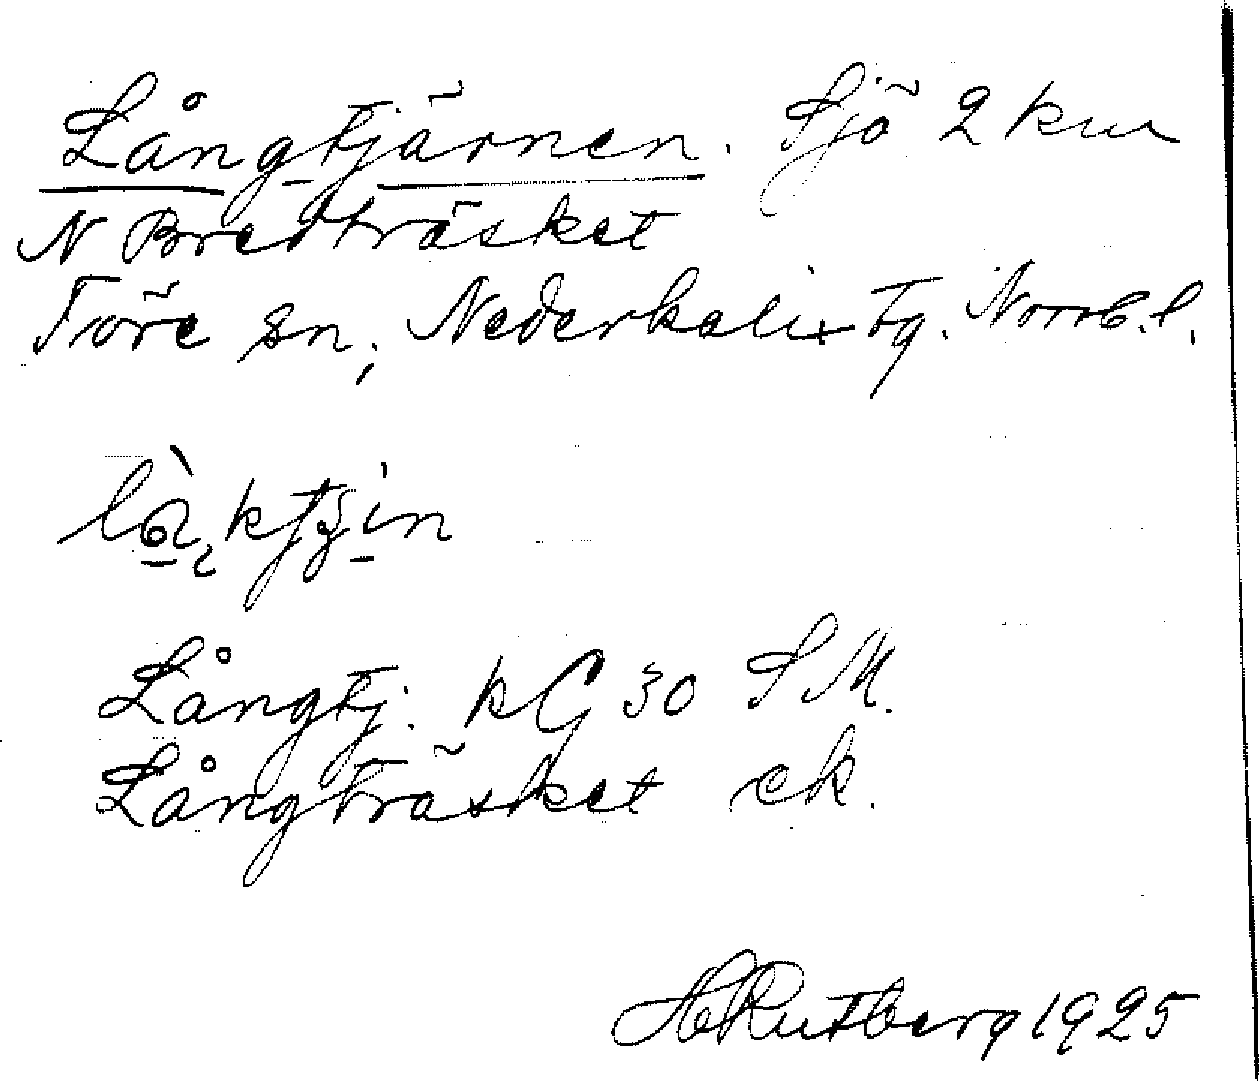 Långtjärnen. Sjö 2 km
N Bredträsket
Töre sn, Nederkalix tg. Norrb. l.
Långtj. kG 30 SM.
Långträsket ek.
H Rutberg 1925